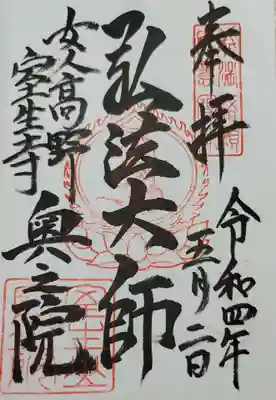 奉拝
令和四年
五月二日
弘法大師
奥之院
女人高野
室生寺